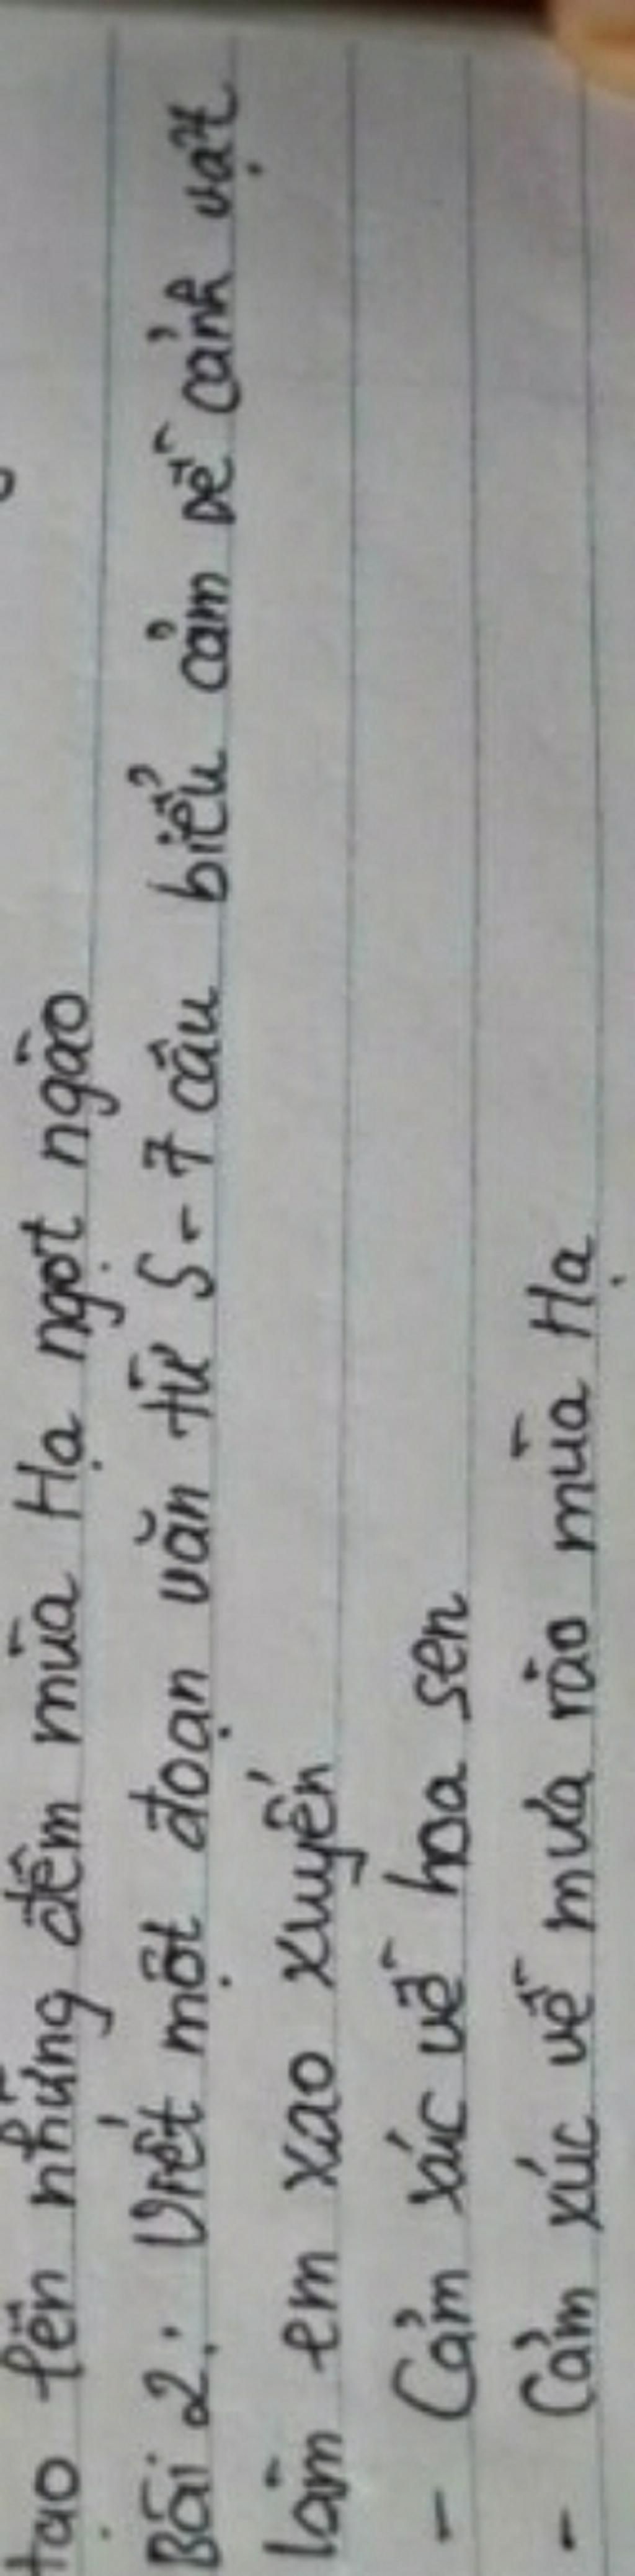 tạo lên những đêm mùa Hạ ngọt ngào
Bài 2: Viết một đoạn văn từ 5-7 câu biểu cảm về cảnh vật
làm em xao xuyến
- Cảm xúc về hoa sen
- Cảm xúc về mưa rào mùa Hạ